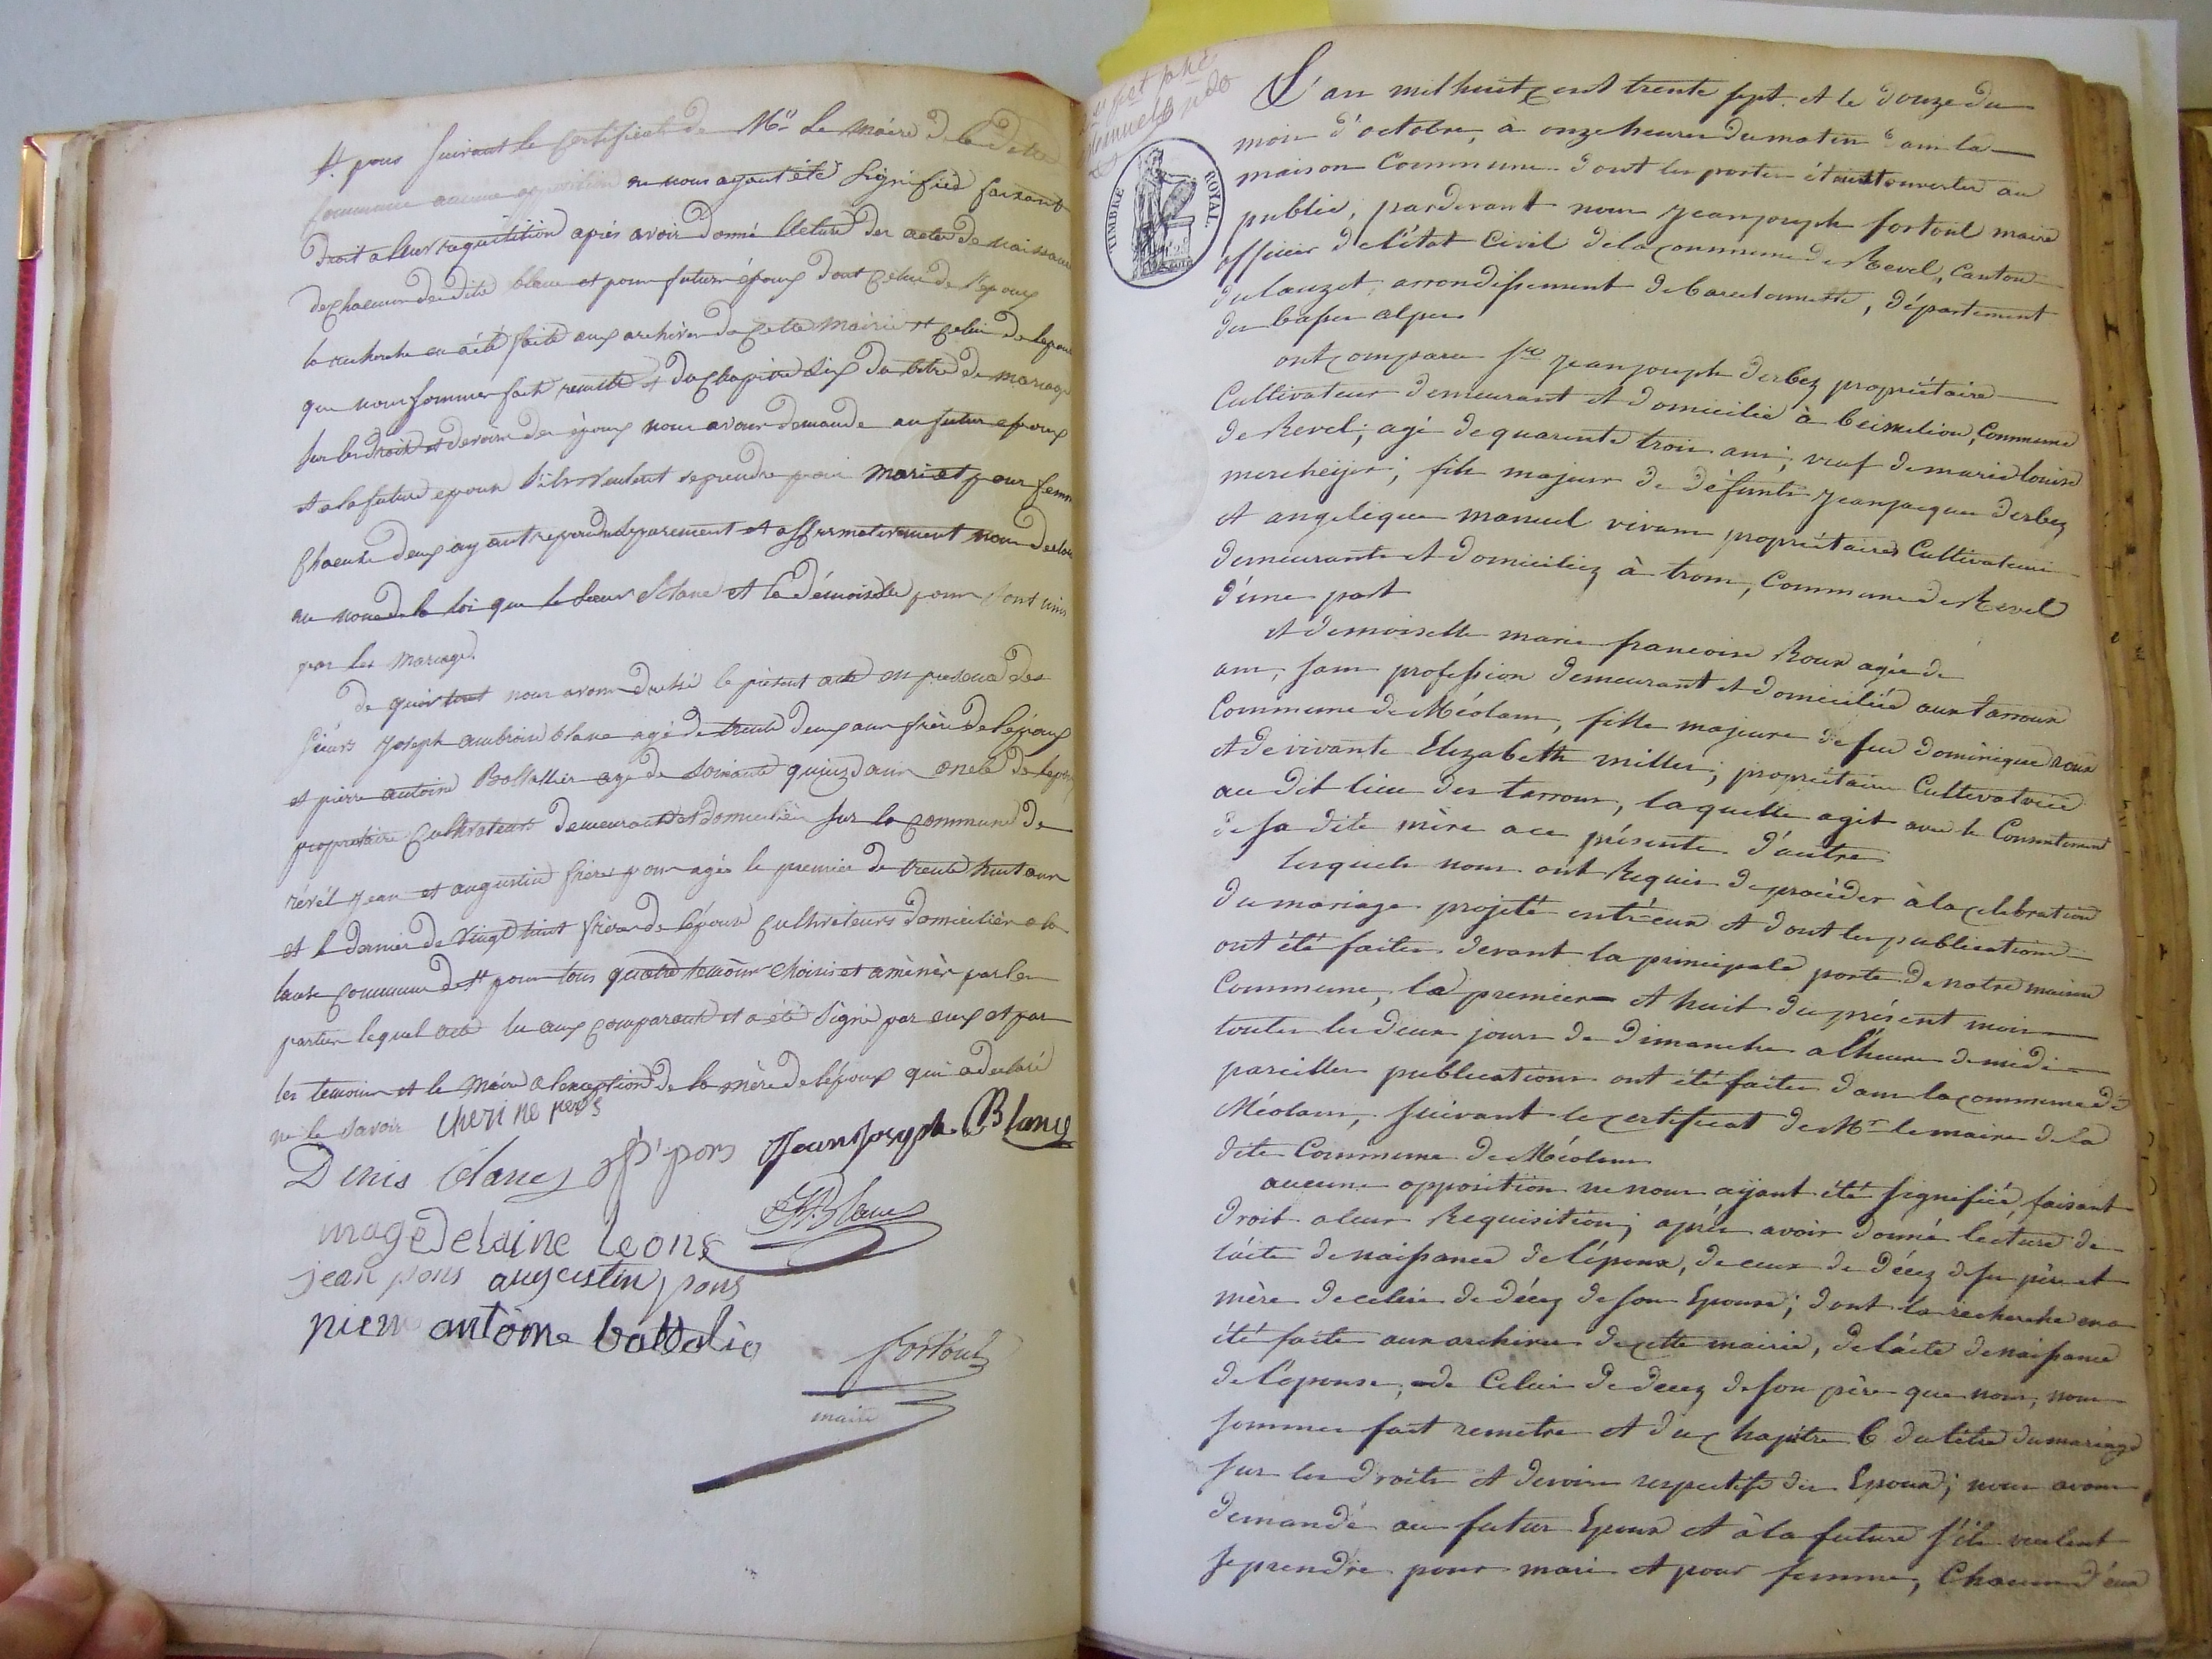 St pons suivant le certificat de Mr Le Maire de la dite
commune aucune opposition ne nous ayant été signifiée faisant
droit a leur requisition après avoir donné lecture des actes de naissance
de chacun desdits blanc et pons futurs époux dont celui de l'époux
la recherche en a été faite aux archives de cette mairie et celui de l'epouse
que nous sommes fait remettre et du chapitre six du titre de mariage
sur les droits et devoirs des époux nous avons demandé au futur epoux
et a la future epouse s'ils veulent se prendre pour mari et pour femme
chacun deux ayant repondu separement et affirmativement nous declarons
au nom de la loi que le sieur blanc et la démoiselle pons sont unis
par les mariage.
de quoi tout nous avons dressé le présent acte en presence des
sieurs joseph ambroise blanc agé de trente deux ans frère de l'époux
et pierre antoine Battallier agé de soixante quinze ans oncle de lepoux
propriétaire cultivateurs demeurants et domiciliés sur la commune de
révél jean et augustin frères pons agés le premier de trente huit ans
et le dernier de vingt huit frères de lépouse cultivateurs domiciliés a la
commune de St pons tous quatre temoins choisis et amènés par les
parties lequel acte lu aux comparants et a été signé par eux et par
les temoins et le Maire a lexception de la mère de lépoux qui a declaré
ne le savoir cherine pons
Denis Blanc pons Jean Joseph Blanc
magedelaine leons Blanc
jean pons augustin pons
pierre antoine battalie
fortoul
maire
TIMBRE ROYAL
L'an mil huit cent trente sept. et le douze du
mois d'octobre, à onze heures du matin dans la
maison Commune dont les portes étaient ouvertes au
public, pardevant nous jean joseph fortoul maire
officier de l'état Civil de la commune de Revel, Canton
du lauzet, arrondissement de barcelonnette, département
des basses alpes
ont comparu sr jean joseph derbez propriétaire
Cultivateur demeurant et domicilié à beimelion, Commune
de Revel; agé de quarente trois ans; veuf de marie louise
mercheijer; fils majeur de défunts jean jacques derbez
et angelique manuel vivans propriétaires Cultivateurs
demeurants et domiciliez à trom, Commune de Revel
d'une part
et demoiselle marie francoise Roux agée de
ans, sans profession demeurant et domiciliée aux tarroux
Commune de Méolans, fille majeure de feu dominique roux
et de vivante Elizabeth millet; propriétaire Cultivatrice
au dit lieu des tarroux, laquelle agit avec le Consentement
de sa dite mère a ce présente d'autre
lesquels nous ont Requis de procéder à la celebration
du mariage projeté entr'eux et dont les publications
ont été faites devant la principale porte de notre maison
Commune, la premiere et huit du présent mois
toutes les deux jours de dimanche a l'heure de midi
pareilles publications ont été faites dans la commune de
Méolans, suivant le certificat de Mr le maire de la
dite Commune de Méolans
aucune opposition ne nous aÿant été signifiée, faisant
droit a leur Requisition; après avoir donné lecture de
l'acte de naissance de l'époux, de ceux de décez de ses père et
mère de celui de décez de son Epouse; dont la recherche en a
été faite aux archives de cette mairie, de l'acte de naissance
de l'épouse, de Celui de decez de son père que nous, nous
sommes fait remetre et du chapitre 6 du titre du mariage
sur les droits et devoirs respectifs des Epoux; nous avons
demandé au futur Epoux et à la future s'ils veulent
se prendre pour mari et pour femme, Chacun d'eux